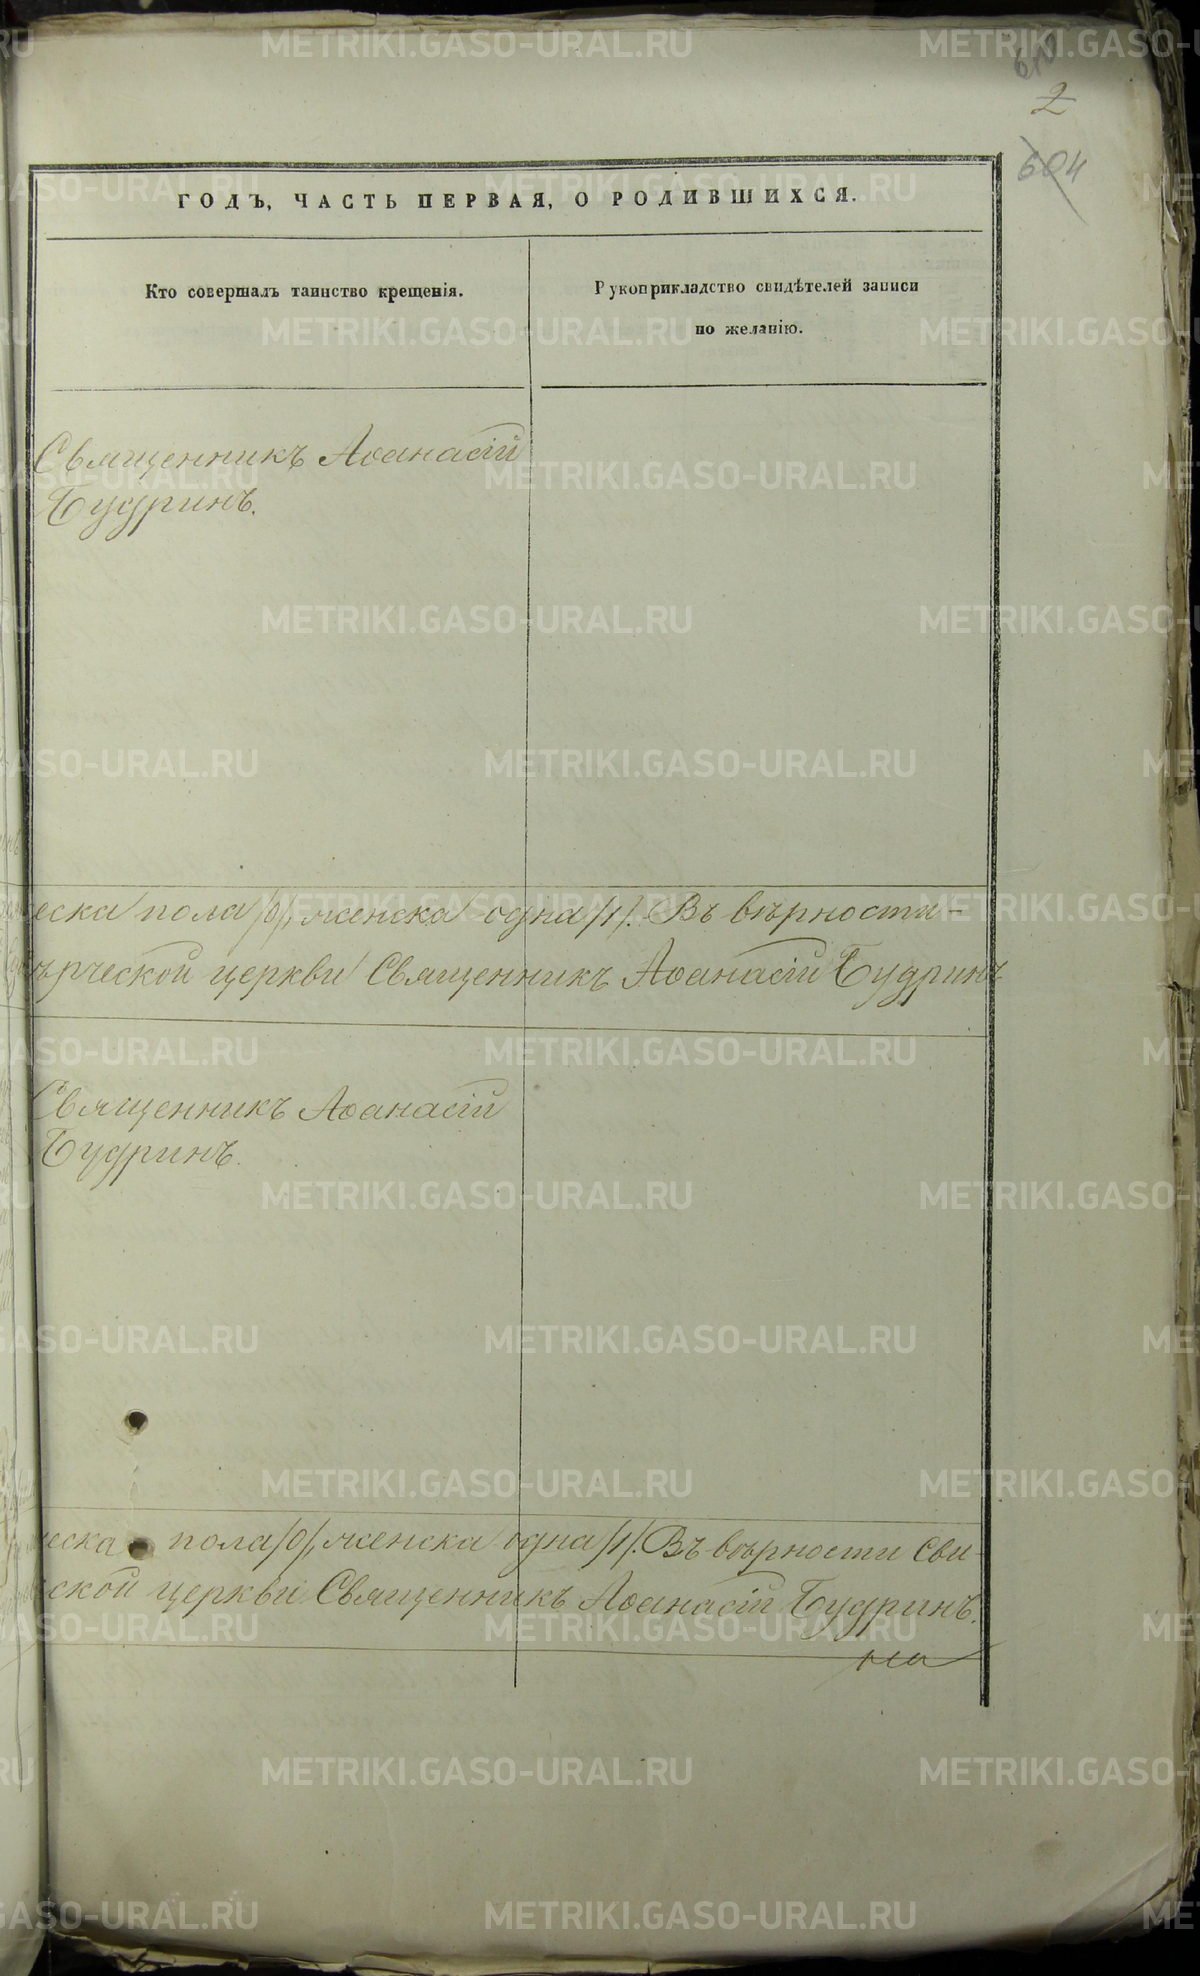 2
604
ГОДЪ, ЧАСТЬ ПЕРВАЯ, О РОДИВШИХСЯ.
Кто совершалъ таинство крещенія.
Рукоприкладство свидѣтелей записи
по желанію.
Священникъ Аѳанасій
Будринъ.
еска пола /0/, женска одна /1/. Въ вѣрности
рческой церкви Священникъ Аѳанасій Будринъ
Священникъ Аѳанасій
Будринъ.
еска пола /0/, женска одна /1/. Въ вѣрности сви-
ской церкви Священникъ Аѳанасій Будринъ.
METRIKI.GASO-URAL.RU